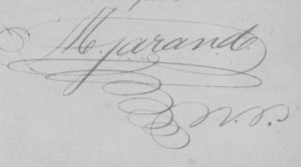 M. Jarand
N.P.